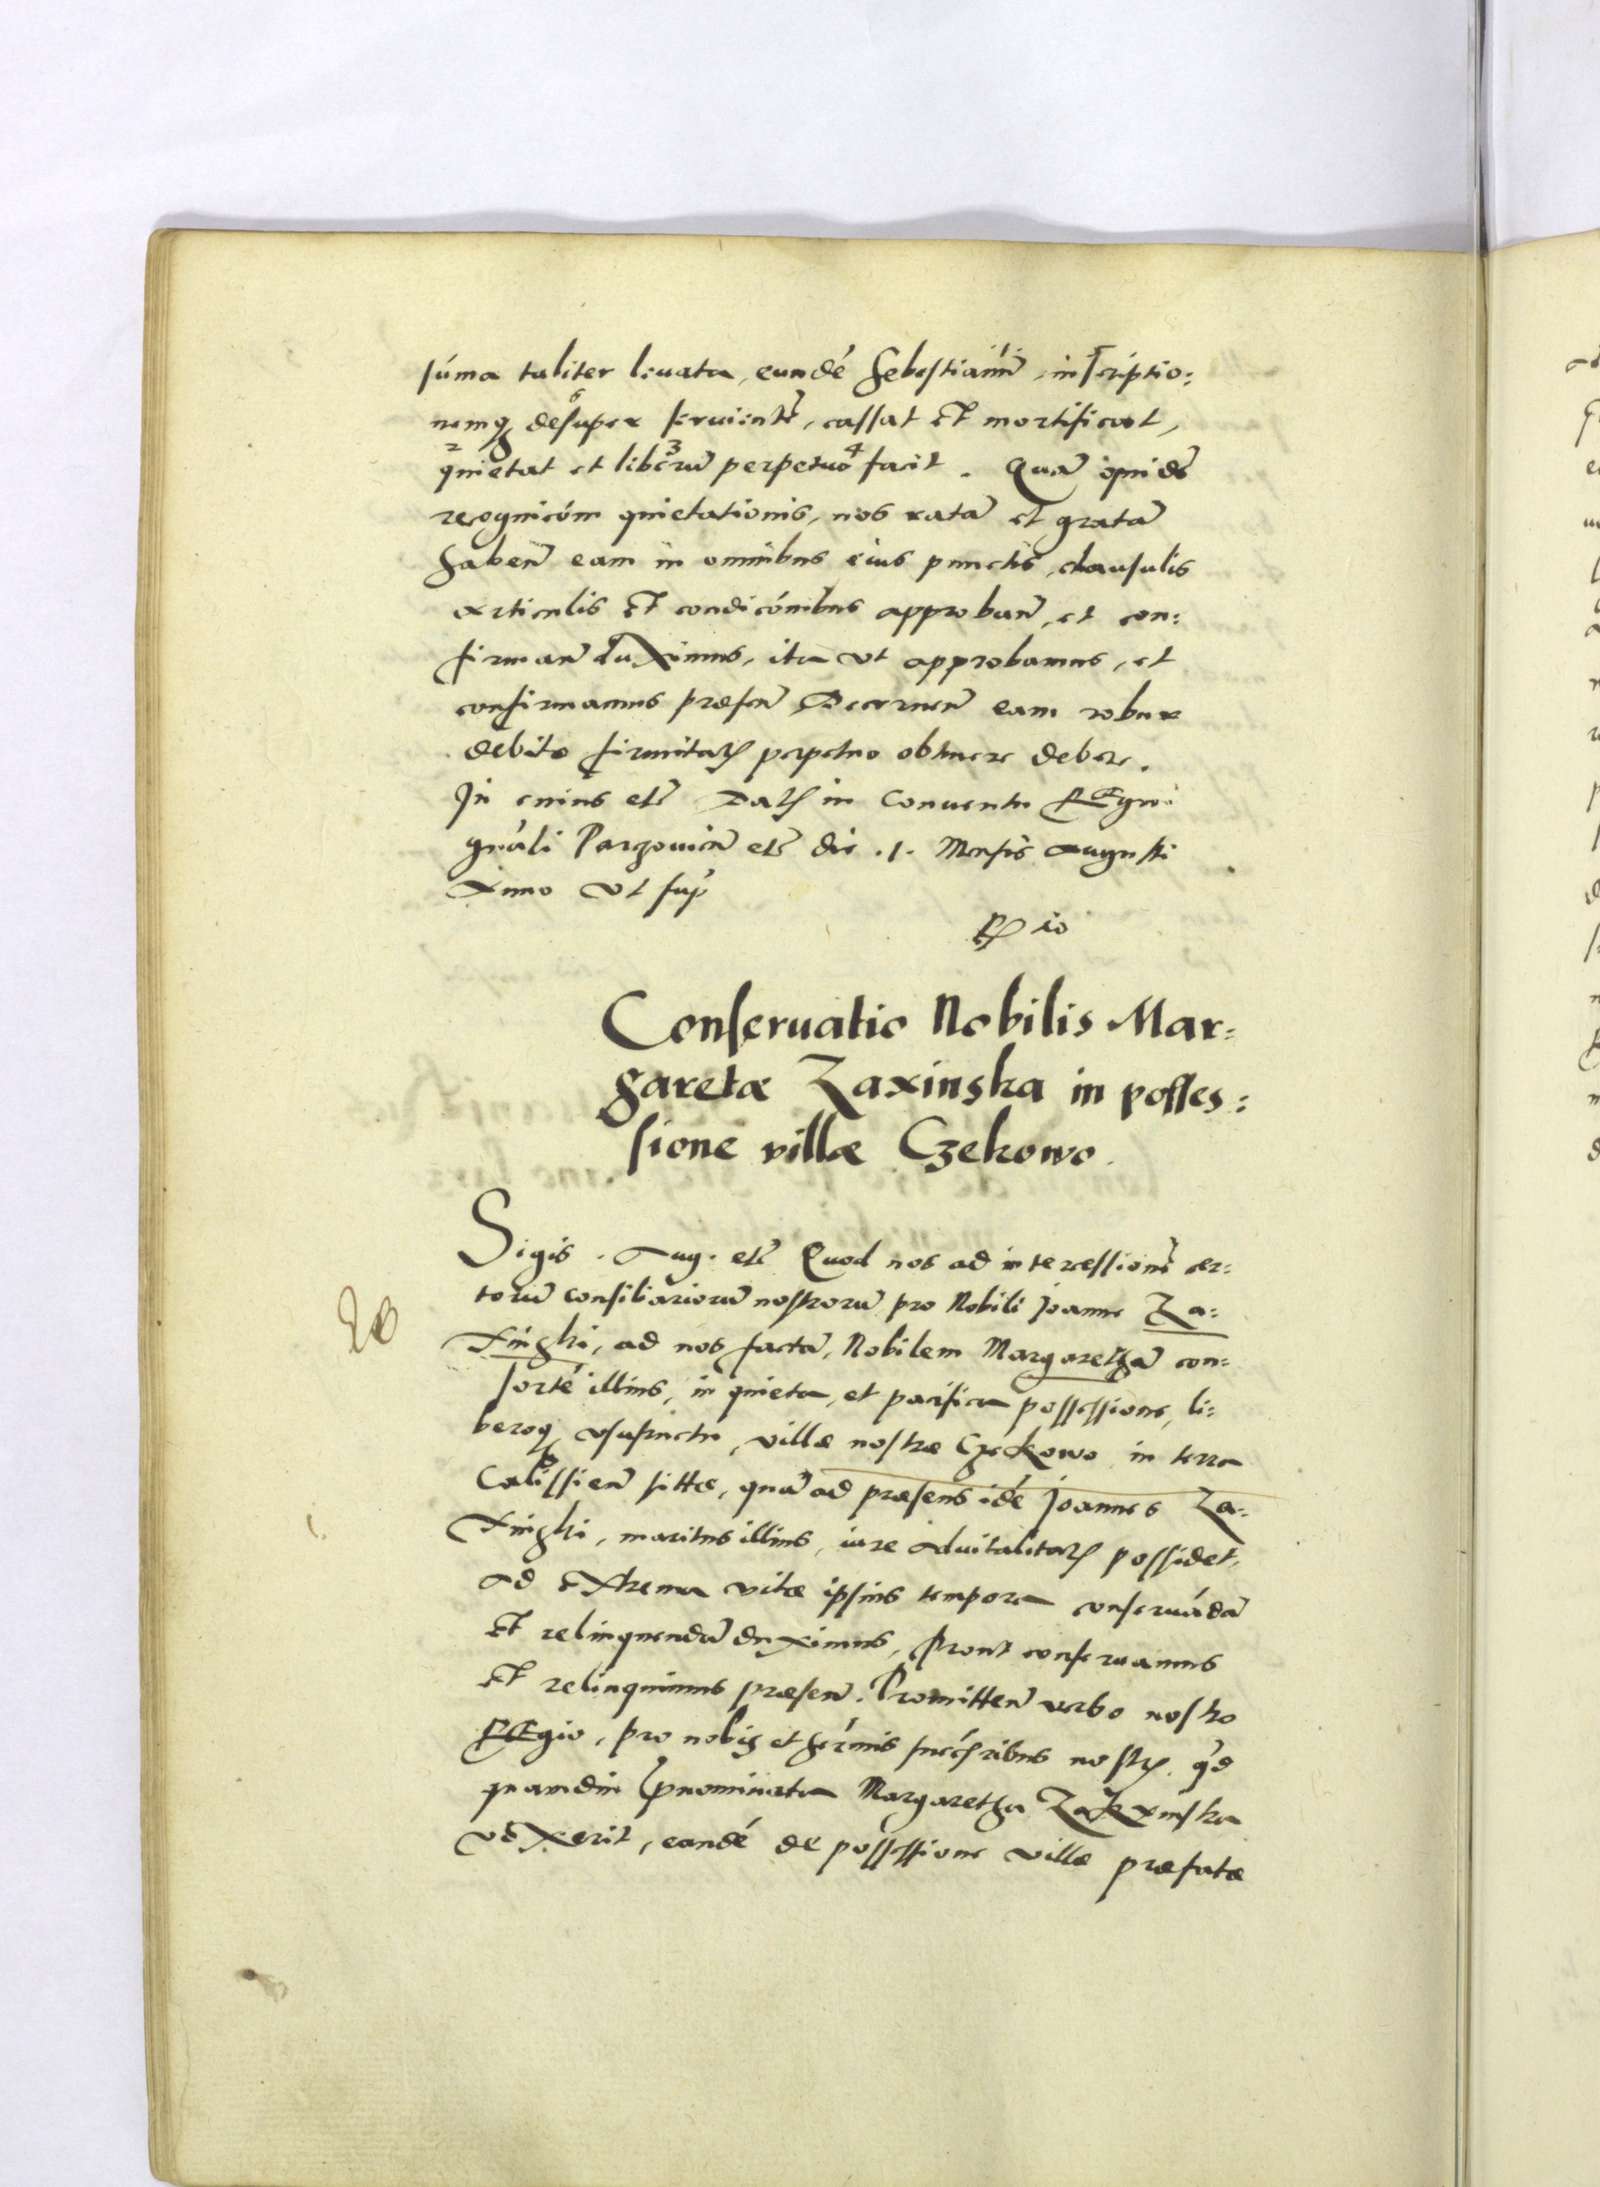 súma taliter levata, eundé Sebestianũ, inscriptio:
nemq desuper servientẽ, cassat et mortificat,
quietat et liberũ perpetuo facit. Quã quidẽ
recognicóm quietationis, nos ratã et gratã
habeñ eam in omnibus eius punctis, clausulis
articulis et condicónibus approbañ, et con:
firmañ duximus, ita ut approbamus, et
confirmamus præseñ Decerneñ eam robur
debitæ firmitatꝭ perpetuo obtinere debere.
In cuius etc̃ Datꝭ in Conventu Regni
gnáli Parzovieñ etc̃ die .1. Mensis Augusti
Anno ut sup
10
Conservatio Nobilis Mar:
garetæ Zaxinska in posses:
sione villæ Czekowo.
Sigis. Aug. etc̃ Quod nos ad intercessionẽ cer:
torũ consiliariorũ nostrorũ pro Nobili Joanne Za:
xinski, ad nos factã, Nobilem Margarethã con:
sorté illius, in quieta, et pacifica possessione, li:
beroq usufructu, villæ nostræ Czekowo in terra
Calissieñ sittæ, quã ad præsens idé Joannes Za:
xinski, maritus illius, iure advitalitatꝭ possidet,
ad extrema vitæ ipsius tempora conservádã
et relinquendã duximus, Prout conservamus
et relinquimus præseñ. Promitteñ verbo nostro
Regio, pro nobis et sernis succꝭribus nostrꝭ. qd
quamdiu pnominata Margaretha Zakxinska
vixerit, eandé de possessione villæ præfatæ